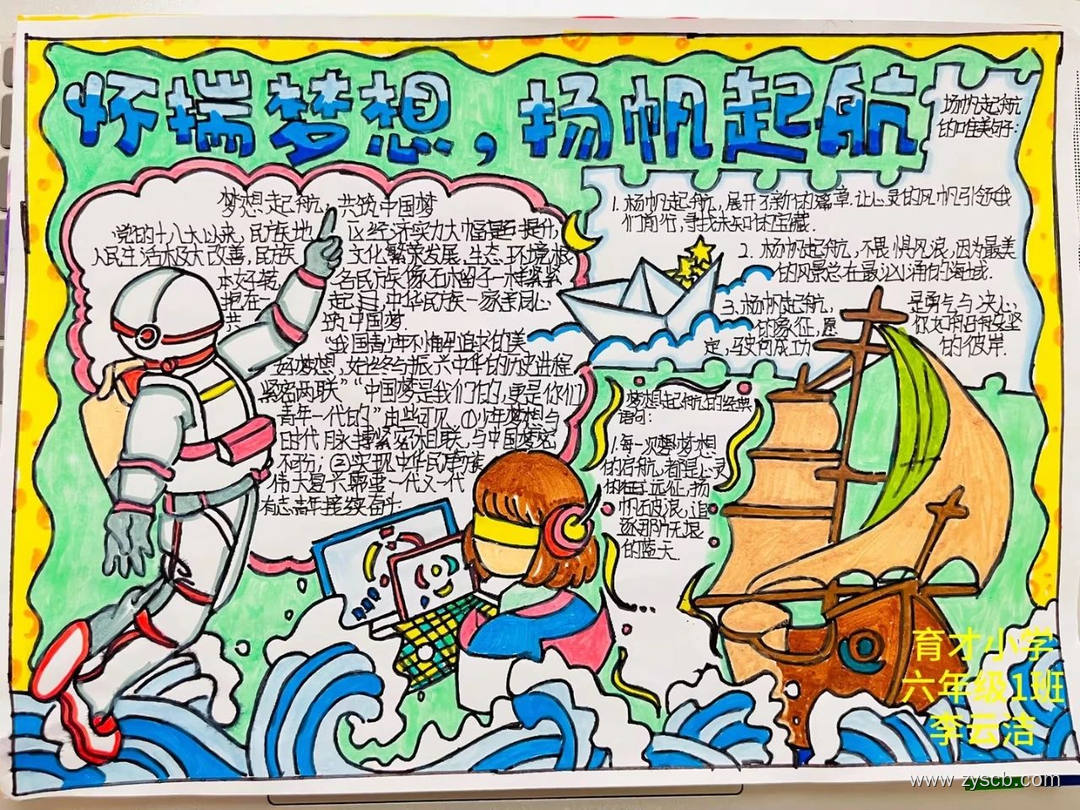 怀揣梦想，扬帆起航
扬帆起航
的唯美句子：
梦想起航，共筑中国梦
党的十八大以来，民族地 区经济实力大幅度提升，
人民生活极大改善，民族 文化繁荣发展，生态环境
各民族像石榴子一样紧紧
抱在一 起，中华民族一家亲同心
共 筑中国梦.
"我国青少年不懈追求的美
好梦想，始终与振兴中华的历史进程
紧密
""中国梦是我们的，更是你们
青年一代的"由此可见 ①少年梦想与
时代 紧密相联，与中国梦密
不可分；②实现中华民族
伟大复兴 一代又一代
有志青年接续奋斗
1.杨帆起航，展开了新的篇章.让心灵的风帆引领我
们前行，寻找未知的宝藏.
2.杨帆起航，不畏惧风浪，因为最美
的风景总在最汹涌的海域.
3.杨帆起航， 是勇气与决心
的象征，愿 你如帆船般坚
定，驶向成功 的彼岸.
梦想起航的经典
语句：
1.每一次梦想
的启航，都是心灵
的 远征，扬
帆 浪，追
逐那 无垠
的蓝天
育才小学
六年级1班
李云洁
www.zyscb.com